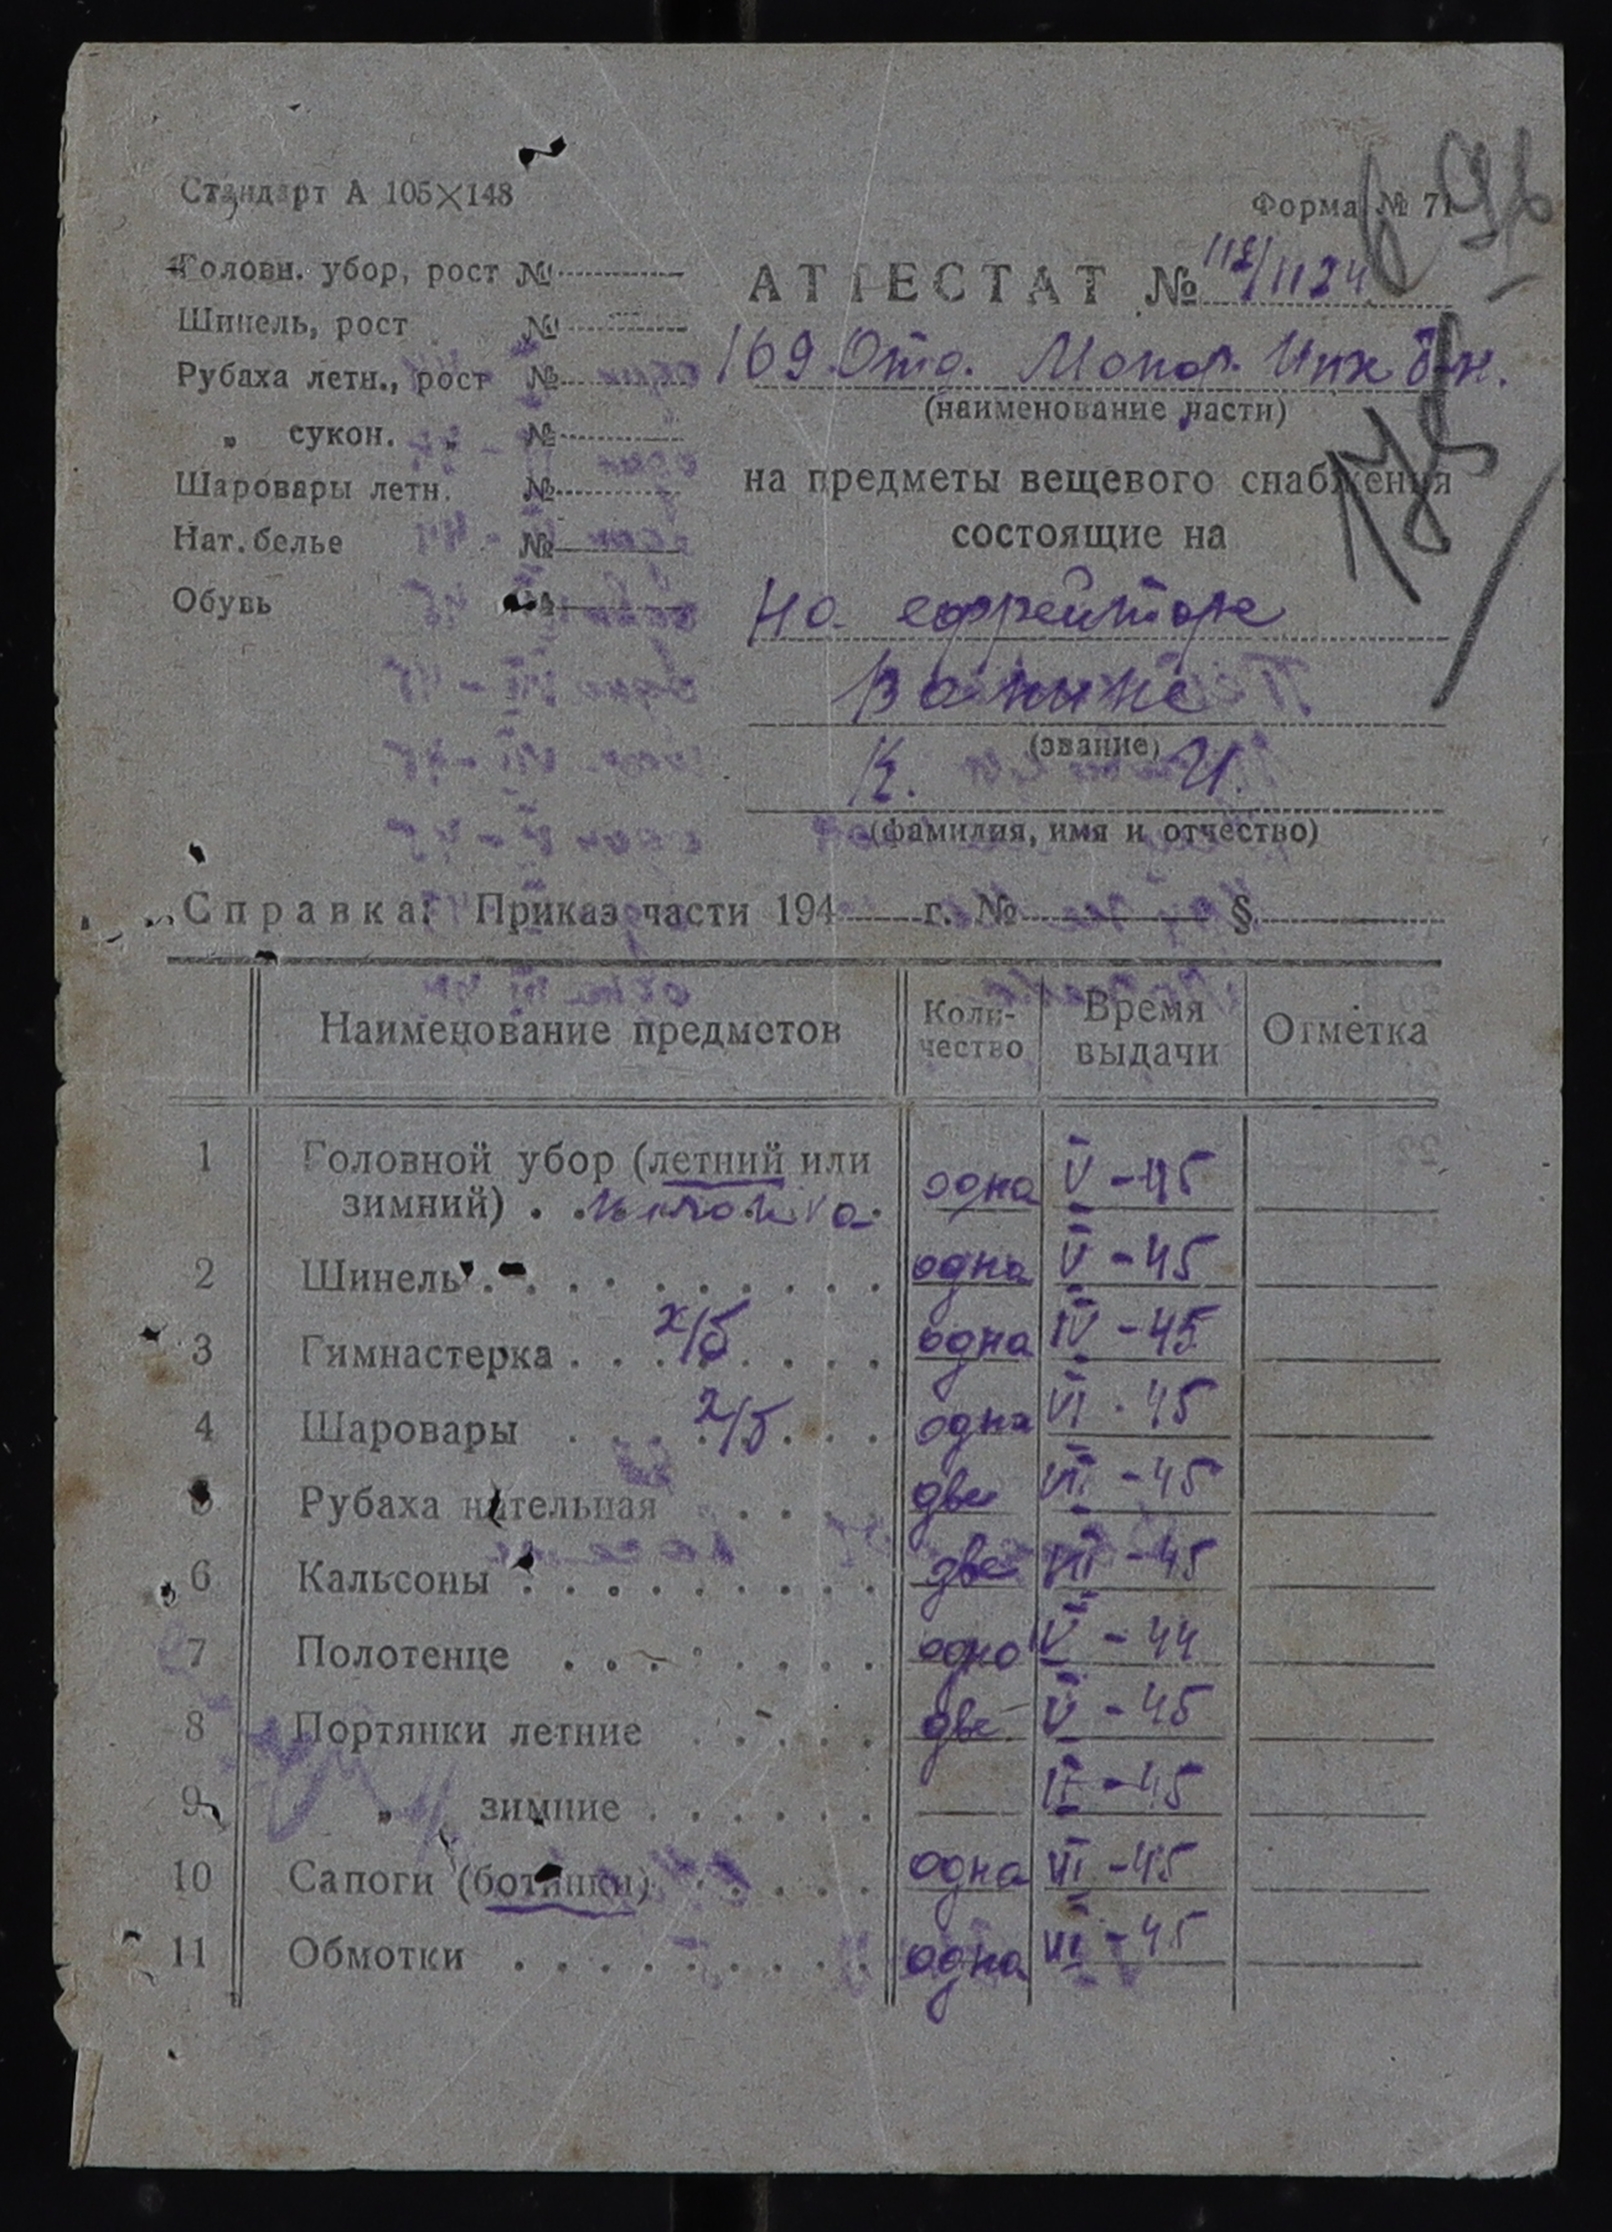 Стандарт А 105×148
Форма № 71
Головн. убор, рост №
Шинель, рост №
Рубаха летн., рост №
„ сукон. „ №
Шаровары летн. №
Нат. белье №
Обувь №
АТТЕСТАТ № /1124
169 Отд. Мопод. Инж б-н.
(наименование части)
на предметы вещевого снабжения
состоящие на
на ефрейтора
(звание)
К. И.
(фамилия, имя и отчество)
Справка: Приказ части 194 г. № §
Наименование предметов Коли-чество Время выдачи Отметка
1 Головной убор (летний или
зимний) . . пилотка одна V-45
2 Шинель одна V-45
3 Гимнастерка х/б одна IV-45
4 Шаровары х/б одна VI-45
5 Рубаха нательная две VII-45
6 Кальсоны две VII-45
7 Полотенце одно V-44
8 Портянки летние две V-45
9 „ зимние II-45
10 Сапоги (ботинки) одна VI-45
11 Обмотки одна VII-45